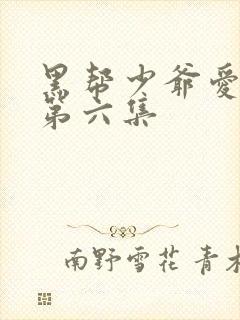 黑帮少爷愛
第六集
南野雪花 青木